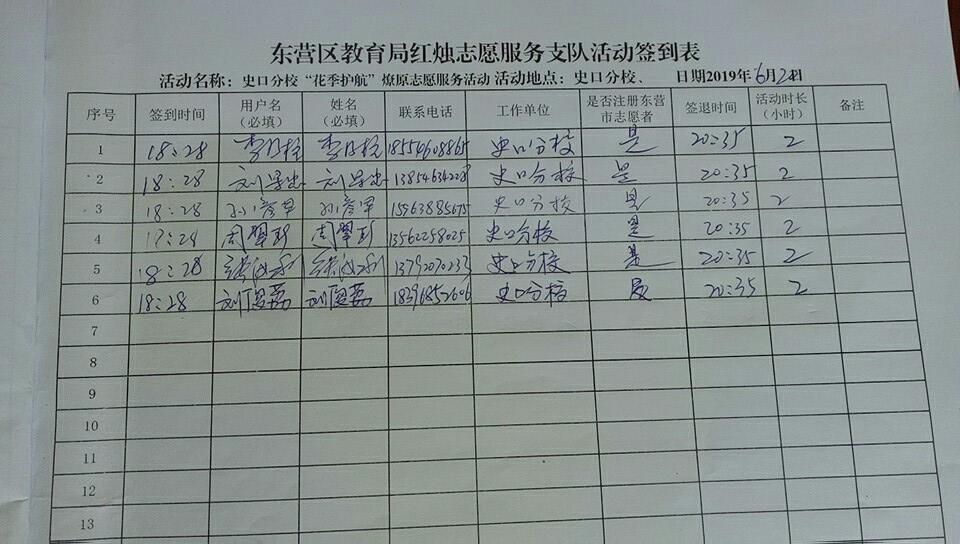 东营区教育局红烛志愿服务支队活动签到表
活动名称：史口分校“花季护航”燎原志愿服务活动 活动地点：史口分校、 日期2019年6月2日
序号 签到时间 用户名（必填） 姓名（必填） 联系电话 工作单位 是否注册东营市志愿者 签退时间 活动时长（小时） 备注
1 18:28 18554608865 史口分校 是 20:35 2
2 18:28 13854634228 史口分校 是 20:35 2
3 18:28 孙彦军 孙彦军 15563885675 史口分校 是 20:35 2
4 周翠玲 周翠玲 13562258025 史口分校 是 20:35 2
5 18:28 13792070233 史口分校 是 20:35 2
6 18:28 刘俊荔 刘俊荔 18396852606 史口分校 是 20:35 2
7
8
9
10
11
12
13